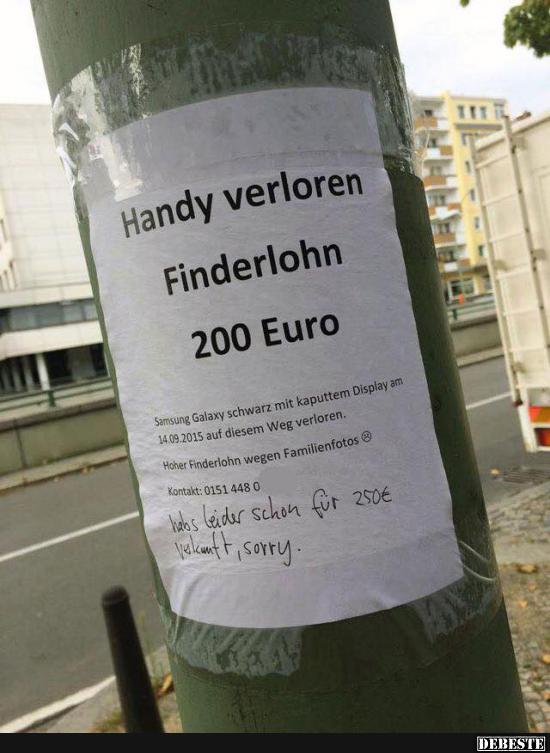 Handy verloren
Finderlohn
200 Euro
Samsung Galaxy schwarz mit kaputtem Display am
14.09.2015 auf diesem Weg verloren.
Hoher Finderlohn wegen Familienfotos ☹
Kontakt: 0151 448 0
habs leider schon für 250€
verkauft, sorry.
DEBESTE